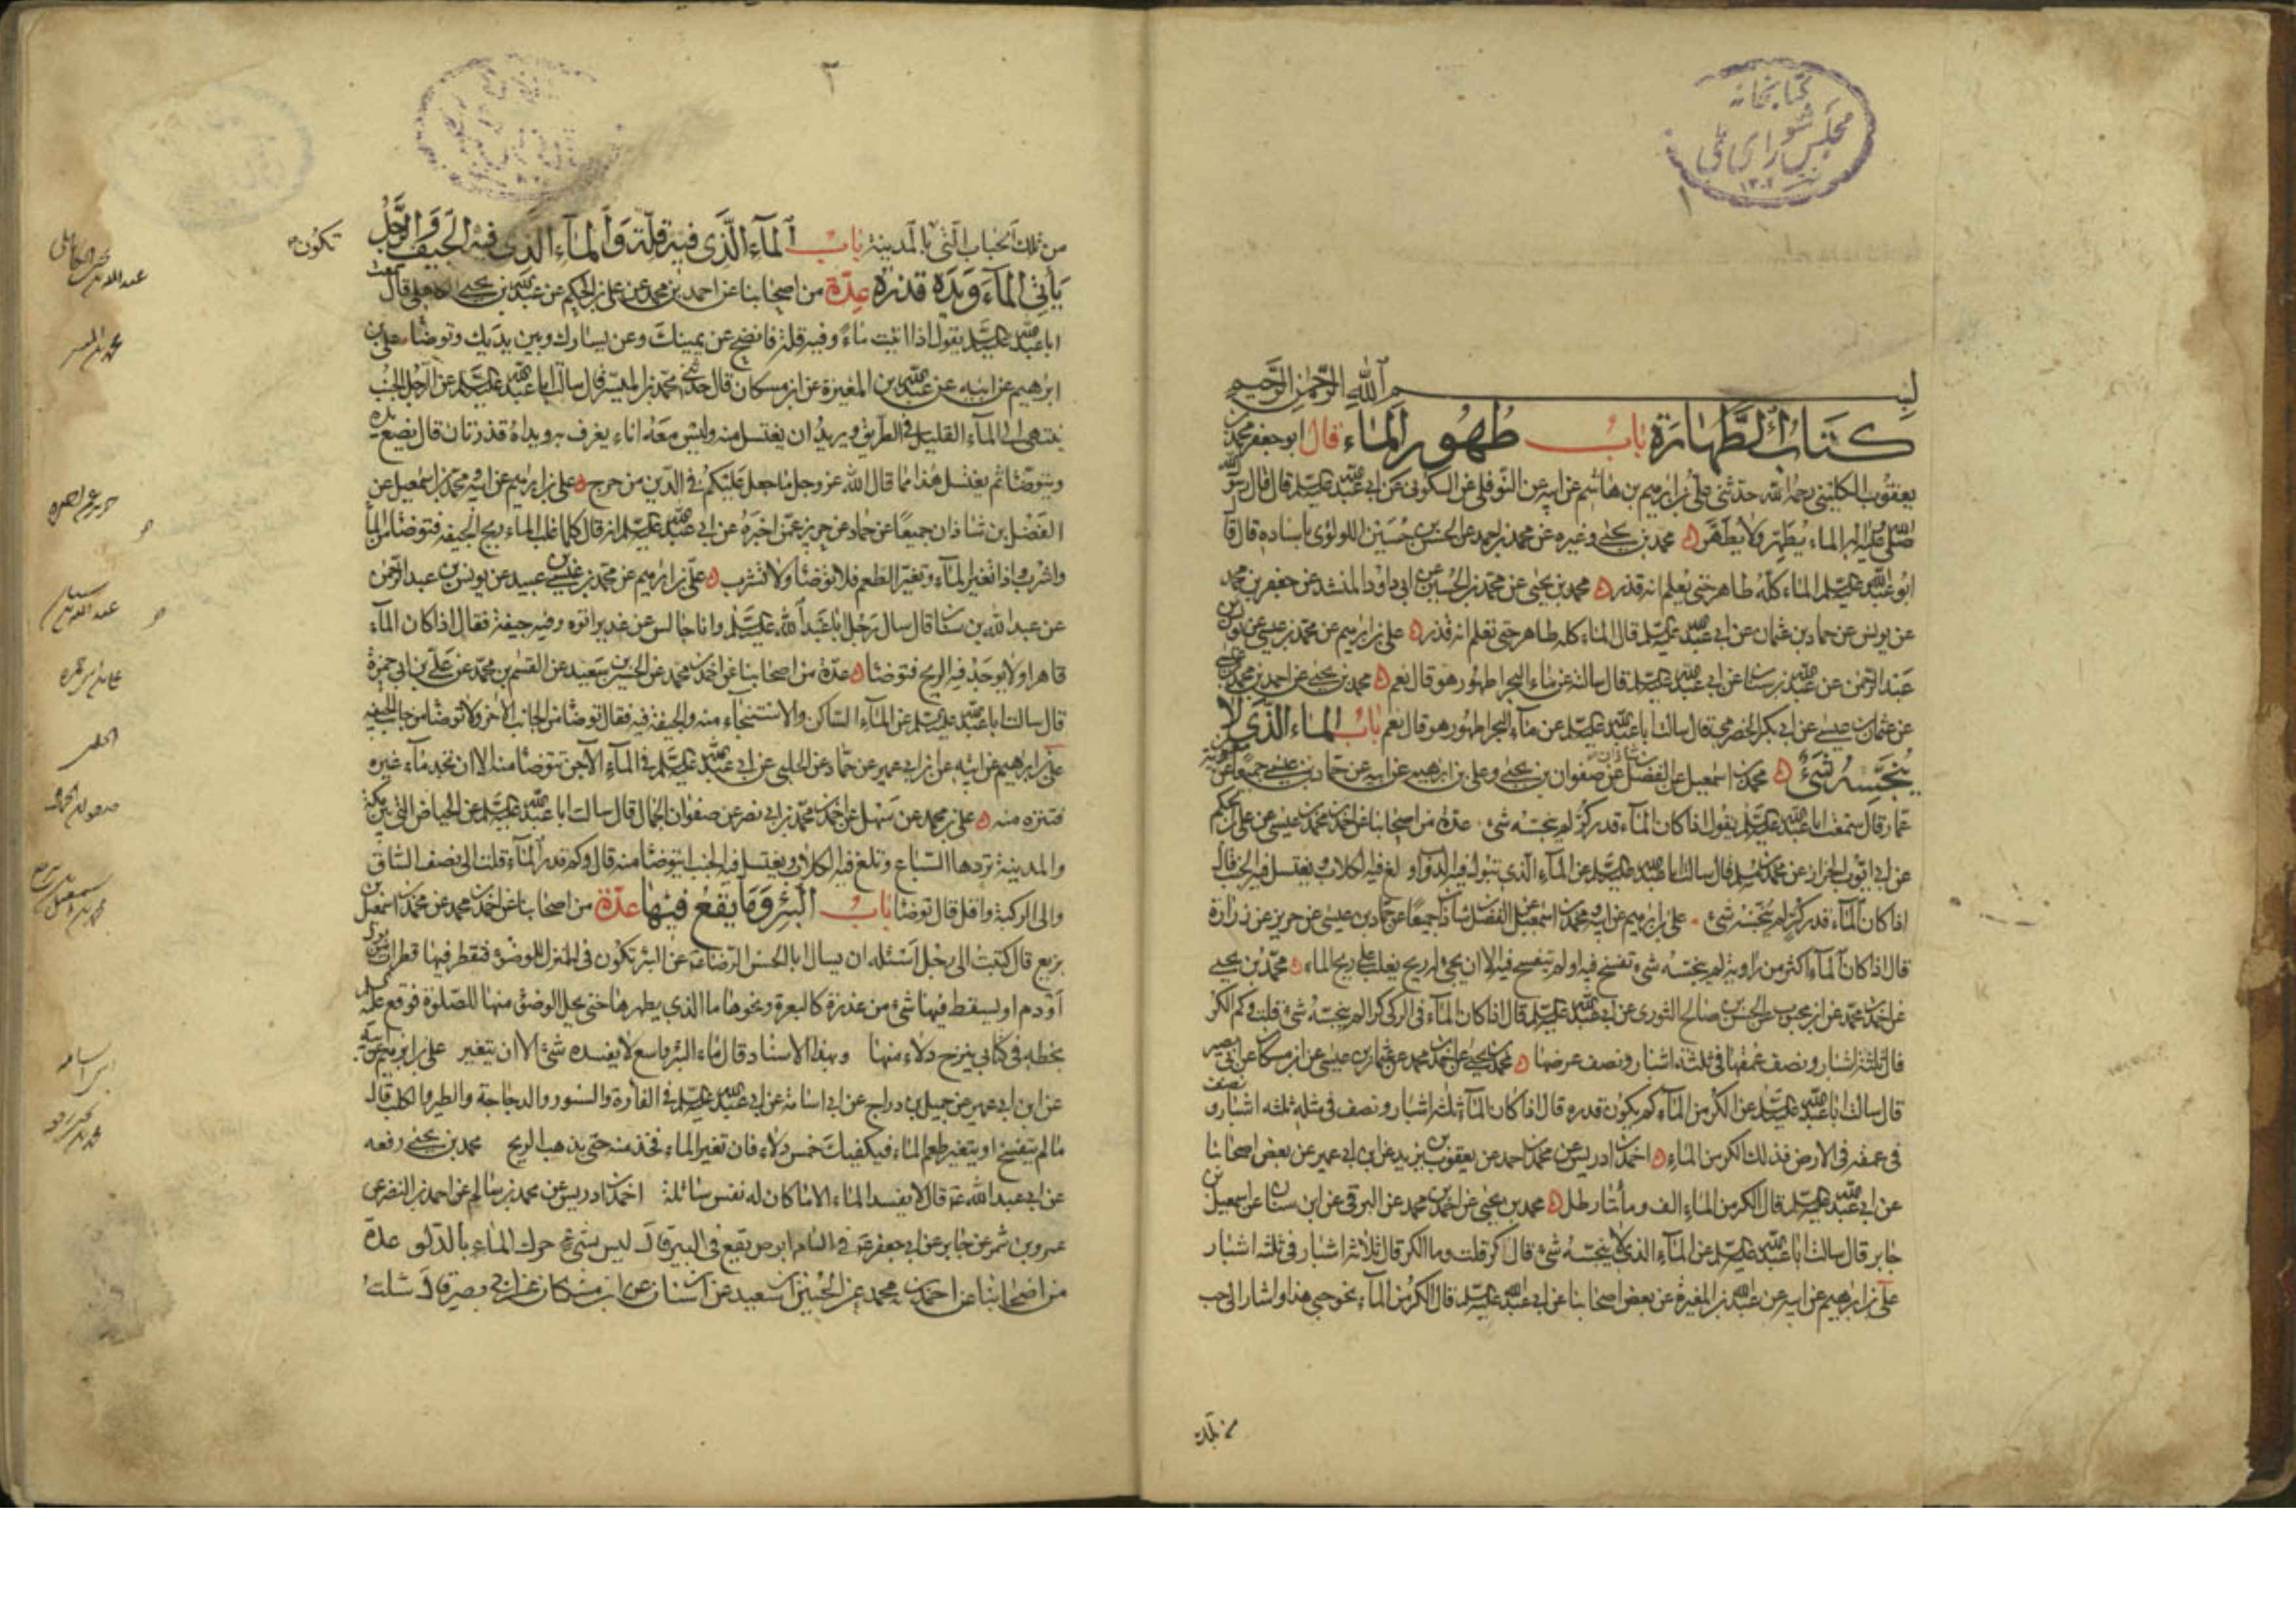 كتابخانه
مجلس شورای ملی
١٣٠٢
بسم الله الرحمن الرحيم
كتاب الطهارة باب طهور الماء قال ابو جعفر محمد بن
يعقوب الكليني رحمه الله حدثنى على بن ابرهيم بن هاشم عن ابيه عن النوفلى عن السكونى عن ابى عبد الله عليه السلم قال قال رسول الله
صلى الله عليه واله الماء يطهر ولا يطهر محمد بن يحيى وغيره عن محمد بن احمد عن الحسن بن حسين اللولوى باسناده قال قا
ابو عبد الله عليه السلم الماء كله طاهر حتى يعلم انه قذر محمد بن يحيى عن محمد بن الحسين عن ابى داود المنشد عن جعفر بن محمد
عن يونس عن حماد بن عثمان عن ابى عبد الله عليه السلم قال الماء كله طاهر حتى تعلم انه قذر على بن ابرهيم عن محمد بن عيسى عن يونس بن
عبد الرحمن عن عبد الله بن سنان عن ابى عبد الله عليه السلم قال سالته عن ماء البحر اطهور هو قال نعم محمد بن يحيى عن احمد بن محمد بن عيسى
عن عثمان بن عيسى عن ابى بكر الحضرمى قال سالت ابا عبد الله عليه السلم عن ماء البحر اطهور هو قال نعم باب الماء الذى لا
ينجسه شىء محمد بن اسمعيل عن الفضل بن شاذان عن صفوان بن يحيى وعلى بن ابرهيم عن ابيه عن حماد بن عيسى جميعا عن معوية بن
عمار قال سمعت ابا عبد الله عليه السلم يقول اذا كان الماء قدر كر لم ينجسه شىء عدة من اصحابنا عن احمد بن محمد بن عيسى عن على بن الحكم
عن ابى ايوب الخزاز عن محمد بن مسلم قال سالت ابا عبد الله عليه السلم عن الماء الذى تبول فيه الدواب و تلغ فيه الكلاب ويغتسل فيه الجنب قال
اذا كان الماء قدر كر لم ينجسه شىء على بن ابرهيم عن ابيه ومحمد بن اسمعيل عن الفضل بن شاذان جميعا عن حماد بن عيسى عن حريز عن زرارة
قال اذا كان الماء اكثر من راوية لم ينجسه شىء تفسخ فيه او لم يتفسخ فيه الا ان يجىء له ريح يغلب على ريح الماء محمد بن يحيى
عن احمد بن محمد عن ابن محبوب عن الحسن بن صالح الثورى عن ابى عبد الله عليه السلم قال اذا كان الماء فى الركى كرا لم ينجسه شىء قلت وكم الكر
قال ثلثة اشبار ونصف عمقها فى ثلثة اشبار ونصف عرضها محمد بن يحيى عن احمد بن محمد عن عثمان بن عيسى عن ابن مسكان عن ابى بصير
قال سالت ابا عبد الله عليه السلم عن الكر من الماء كم يكون قدره قال اذا كان الماء ثلثة اشبار ونصف فى مثله ثلثه اشبار و نصف
فى عمقه فى الارض فذلك الكر من الماء احمد بن ادريس عن محمد بن احمد عن يعقوب بن يزيد عن ابن ابى عمير عن بعض اصحابنا
عن ابى عبد الله عليه السلم قال الكر من الماء الف ومأتا رطل محمد بن يحيى عن احمد بن محمد عن البرقى عن ابن سنان عن اسمعيل بن
جابر قال سالت ابا عبد الله عليه السلم عن الماء الذى لا ينجسه شىء قال كر قلت وما الكر قال ثلاثة اشبار فى ثلثه اشبار
على بن ابرهيم عن ابيه عن عبد الله بن المغيرة عن بعض اصحابنا عن ابى عبد الله عليه السلم قال الكر من الماء نحو حبى هذا واشار الى حب
من تلك
٢
من تلك الحباب التى بالمدينة باب الماء الذى فيه قلة والماء الذى فيه الجيف والرجل
ياتى الماء ويده قذرة عدة من اصحابنا عن احمد بن محمد عن على بن الحكم عن عبد الله بن يحيى قال سمعت
ابا عبد الله عليه السلم يقول اذا اتيت ماء وفيه قلة فانضح عن يمينك وعن يسارك وبين يديك وتوضا على بن
ابرهيم عن ابيه عن عبد الله بن المغيرة عن ابن مسكان قال حدثنى محمد بن الميسر قال سالت ابا عبد الله عليه السلم عن الرجل الجنب
ينتهى الى الماء القليل فى الطريق ويريد ان يغتسل منه وليس معه اناء يغرف به ويداه قذرتان قال يضع يده
ويتوضا ثم يغتسل هذا مما قال الله عز وجل ما جعل عليكم فى الدين من حرج على بن ابرهيم عن ابيه ومحمد بن اسمعيل عن
الفضل بن شاذان جميعا عن حماد عن حريز عمن اخبره عن ابى عبد الله عليه السلم انه قال كلما غلب الماء ريح الجيفة فتوضا من الماء
واشرب واذا تغير الماء وتغير الطعم فلا توضا ولا تشرب على بن ابرهيم عن محمد بن عيسى بن عبيد عن يونس بن عبد الرحمن
عن عبد الله بن سنان قال سال رجل ابا عبد الله عليه السلم وانا جالس عن غدير اتوه وفيه جيفة فقال اذا كان الماء
قاهرا ولا يوجد فيه الريح فتوضا عدة من اصحابنا عن احمد بن محمد عن الحسين بن سعيد عن القسم بن محمد عن على بن ابى حمزة
قال سالت ابا عبد الله عليه السلم عن الماء الساكن والاستنجاء منه والجيفة فيه فقال توضا من الجانب الاخر ولا توضا من جانب الجيفة
على بن ابرهيم عن ابيه عن ابن ابى عمير عن حماد عن الحلبى عن ابى عبد الله عليه السلم فى الماء الآجن تتوضا منه الا ان تجد ماء غيره
فتنزه منه على بن محمد عن سهل عن احمد بن محمد بن ابى نصر عن صفوان الجمال قال سالت ابا عبد الله عليه السلم عن الحياض التى بين مكة
والمدينة تردها السباع وتلغ فيه الكلاب ويغتسل فيه الجنب ايتوضا منه قال وكم قدر الماء قلت الى نصف الساق
والى الركبة واقل قال توضا باب البئر وما يقع فيها عدة من اصحابنا عن احمد بن محمد عن محمد بن اسمعيل بن
بزيع قال كتبت الى رجل اسئله ان يسال ابا الحسن الرضا عن البئر تكون فى المنزل للوضوء فتقطر فيها قطرات بول
او دم او يسقط فيها شىء من عذرة كالبعرة ونحوها ما الذى يطهرها حتى يحل الوضوء منها للصلوة فوقع عليه السلم
بخطه فى كتابى ينزح دلاء منها وبهذا الاسناد قال ماء البئر واسع لا يفسده شىء الا ان يتغير على بن ابرهيم عن ابيه
عن ابن ابى عمير عن جميل بن دراج عن ابى اسامة عن ابى عبد الله عليه السلم فى الفارة والسنور والدجاجة والطير والكلب قال
ما لم يتفسخ او يتغير طعم الماء فيكفيك خمس دلاء فان تغير الماء فخذ منه حتى يذهب الريح محمد بن يحيى رفعه
عن ابى عبد الله ع قال لا يفسد الماء الا ما كان له نفس سائلة احمد بن ادريس عن محمد بن سالم عن احمد بن النضر عن
عمرو بن شمر عن جابر عن ابى جعفر ع فى السام ابرص يقع فى البير قال ليس بشىء حرك الماء بالدلو عدة
من اصحابنا عن احمد بن محمد عن الحسين بن سعيد عن ابن سنان عن ابن مسكان عن ابى بصير قال سالت
تكون